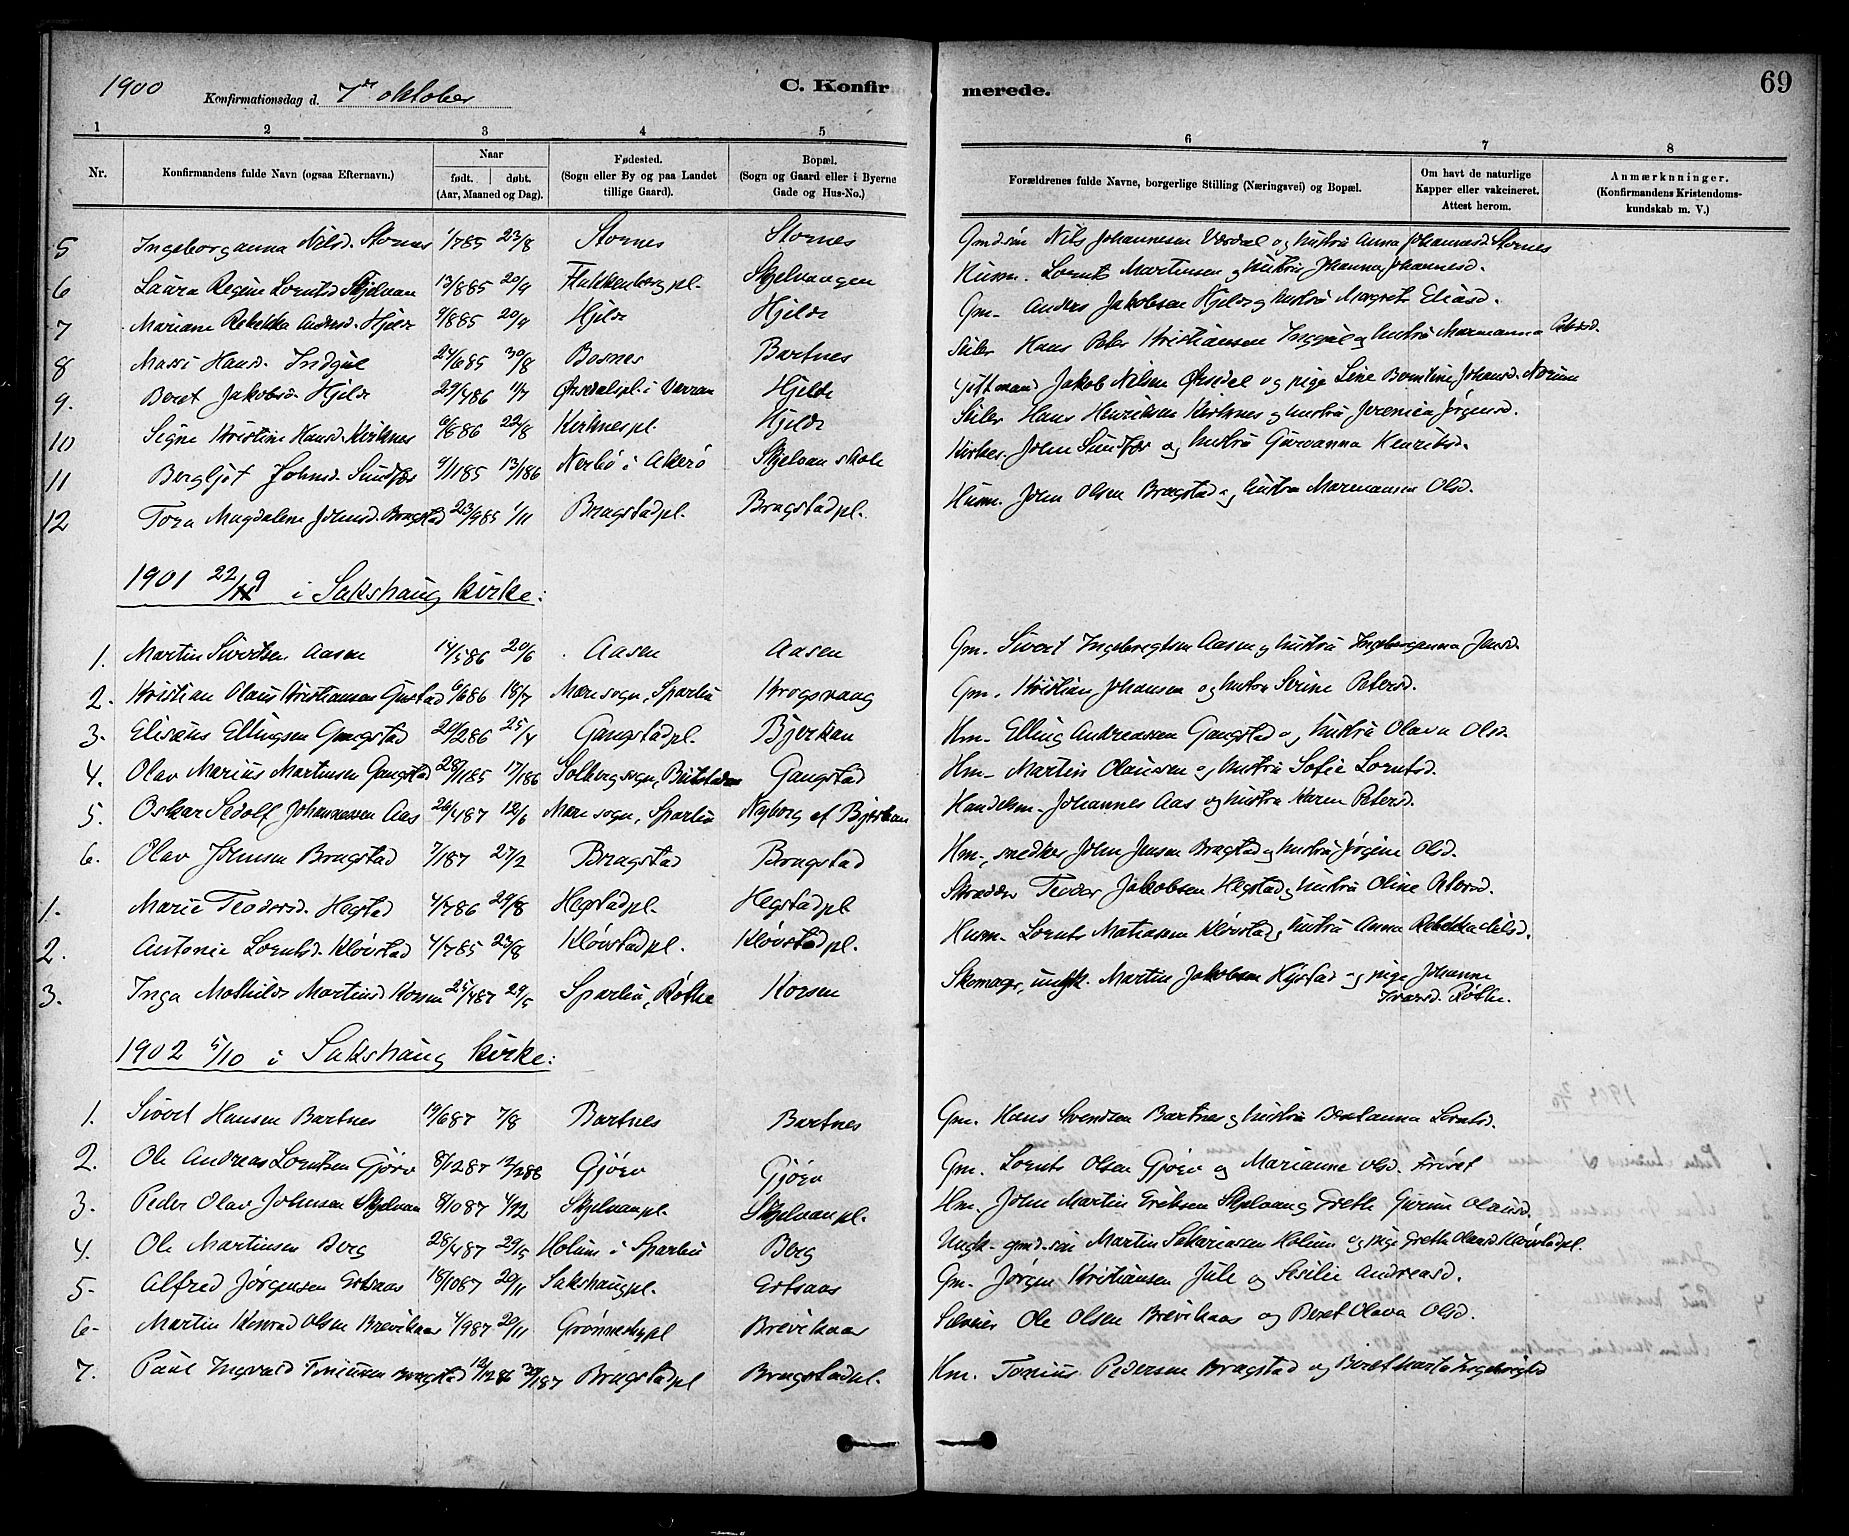 1900 Konfirmationsdag d. 7de oktober C. Konfirmerede. 69
1 2 3 4 5 6 7 8
Nr. Konfirmandens fulde Navn (ogsaa Efternavn). Naar født. døbt. (Aar, Maaned og Dag). Fødested. (Sogn eller By og paa Landet tillige Gaard). Bopæl. (Sogn og Gaard eller i Byerne Gade og Hus-No.) Forældrenes fulde Navne, borgerlige Stilling (Næringsvei) og Bopæl. Om havt de naturlige Kapper eller vakcineret. Attest herom. Anmærknninger. (Konfirmandens Kristendoms-kundskab m. V.)
5 Ingeborganna Nilsd. Stornes 1/785 23/8 Stornes Stornes Gmdsøn Nils Johannesen Værdal og hustru Anna Johannesd. Stornes
6 Laura Regine Lorntsd. Skjelvan 13/885 20/9 Flakkenbergpl. Skjelvangen Husm. Lornts Martinsen og hustru Johanna Johannesd.
7 Mariane Rebekka Andersd. Hjelde 9/885 20/9 Hjelde Hjelde Gm. Anders Jakobsen Hjelde og hustru Margrete Eliasd.
8 Massi Hansd. Indgul 24/685 30/8 Bosnes Bartnes Seiler Hans Peter Kristiansen Inggul og hustru Marmanna Petersd.
9. Beret Jakobsd. Hjelde 29/486 1/7 Ørsdalspl. i Verran Hjelde Gift mand Jakob Nilsen Ørsdal og pige Line Bomtine Johansd. Norum
10 Signe Kristine Hansd. Kirknes 6/686 22/8 Kirknespl. Hjelde Seiler Hans Henriksen Kirknes og hustru Jeremica Jørgensd.
11 Bergljot Johnsd. Sundfær 9/1185 13/186 Nerbø i Akerø Skjelvan skole Kirkes. John Sundfær og hustru Gurvanna Henriksd.
12 Tora Magdalene Johnsd. Bragstad 23/985 1/11 Bragstadpl. Bragstadpl. Husm. John Olsen Bragstad og hustru Marmansen Olsd.
1901 22/9 i Sakshaug kirke:
1. Martin Sivertsen Aasen 14/586 20/6 Aasen Aasen Gm. Sivert Ingebregtsen Aasen og hustru Ingeborganna Jensd.
2. Kristian Olaus Kristiansen Gustad 6/686 18/7 Mære sogn, Sparbu Krogsvaag Gm. Kristian Johansen og hustru Serine Petersd.
3. Elisæus Ellingsen Gangstad 20/286 25/4 Gangstadpl. Bjerkan Hm. Elling Andreassen Gangstad og hustru Olava Olsd.
4. Olav Marius Martinsen Gangstad 28/1185 17/186 Solberg sogn, Beitstaden Gangstad Hm. Martin Olaussen og hustru Sofie Lorntsd.
5. Oskar Sedolf Johannessen Aas 26/487 12/6 Mære sogn, Sparbu Nyborg af Bjerkan Handelsm. Johannes Aas og hustru Karen Petersd.
6. Olav Johnsen Bragstad 7/187 27/2 Bragstad Bragstad Hm., snedker John Jensen Bragstad og hustru Jørgine Olsd.
1. Marie Teodorsd. Hegstad 4/786 29/8 Hegstadpl. Hegstadpl Skrædder Teodor Jakobsen Hegstad og hustru Oline Petersd.
2. Antonie Lorntsd. Kløvstad 4/785 23/8 Kløvstadpl. Kløvstadpl. Husm. Lornts Matiasen Kløvstad og hustru Anna Rebekka Nilsd.
3. Inga Mathilde Martinsd. Korsen 25/487 29/5 Sparbu, Røthe Korsen Skomager, ungk. Martin Jakobsen Hegstad og pige Johanne
Ivarsd. Røthe.
1902 5/10 i Sakshaug kirke:
1. Sivert Hansen Bartnes 19/687 7/8 Bartnes Bartnes Gm. Hans Svendsen Bartnes og hustru Bertanna Lorntsd.
2. Ole Andreas Lorntsen Gjørv 8/1287 12/288 Gjørv Gjørv Gm. Lornts Olsen Gjørv og Marianne Olsd. Fristet
3. Peder Olav Johnsen Skjelvan 8/1087 4/12 Skjelvanpl. Skjelvanpl. Hm. John Martin Eriksen Skjelvan og Grethe Gurine Olausd.
4. Ole Martinsen Berg 28/487 29/5 Holum i Sparbu Berg Ungk. gmd.søn Martin Sakariassen Holum og pige Grethe Olausd. Kløvstadpl.
5. Alfred Jørgensen Ertsaas 18/1087 20/11 Sakshaugpl. Ertsaas Gm. Jørgen Kristiansen Jule og Sesilie Andreasd.
6. Martin Konrad Olsen Brevikaas 4/987 20/11 Grønnesbypl Brevikaas Ole Olsen Brevikaas og Beret Olava Olsd.
7. Paul Ingvald Toniusen Bragstad 12/1286 30/187 Bragstadpl Bragstadpl. Hm. Tonius Pedersen Bragstad og Beret Marta Ingebrigtsd